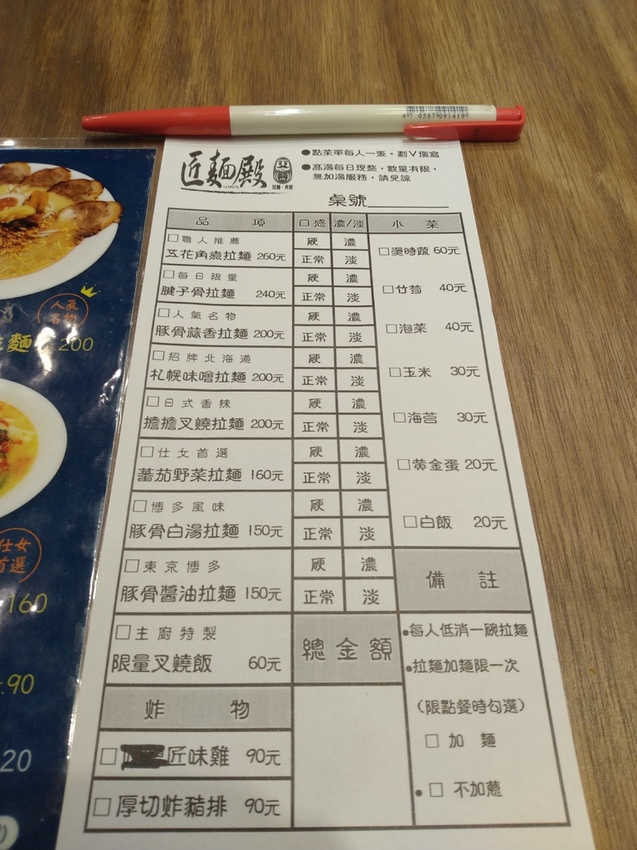 4 710587 091419
匠麵殿
●點菜單每人一張，劃V填寫
●高湯每日現熬，數量有限，
無加湯服務，請見諒
桌號
品項 口感 濃/淡 小菜
□職人推薦 硬 濃
五花角煮拉麵 260元 正常 淡
□每日限量 硬 濃
腱子骨拉麵 240元 正常 淡
□人氣名物 硬 濃
豚骨蒜香拉麵 200元 正常 淡
□招牌北海道 硬 濃
札幌味噌拉麵 200元 正常 淡
□日式香辣 硬 濃
擔擔叉燒拉麵 200元 正常 淡
□仕女首選 硬 濃
蕃茄野菜拉麵 160元 正常 淡
□博多風味 硬 濃
豚骨白湯拉麵 150元 正常 淡
□東京博多 硬 濃
豚骨醬油拉麵 150元 正常 淡
□主廚特製
限量叉燒飯 60元
炸物
□匠味雞 90元
□厚切炸豬排 90元
□燙時蔬 60元
□竹筍 40元
□泡菜 40元
□玉米 30元
□海苔 30元
□黃金蛋 20元
□白飯 20元
總金額
備註
●每人低消一碗拉麵
●拉麵加麵限一次
(限點餐時勾選)
□ 加麵
●□ 不加蔥
人氣
名物
麵 200
仕女
首選
160
90
20